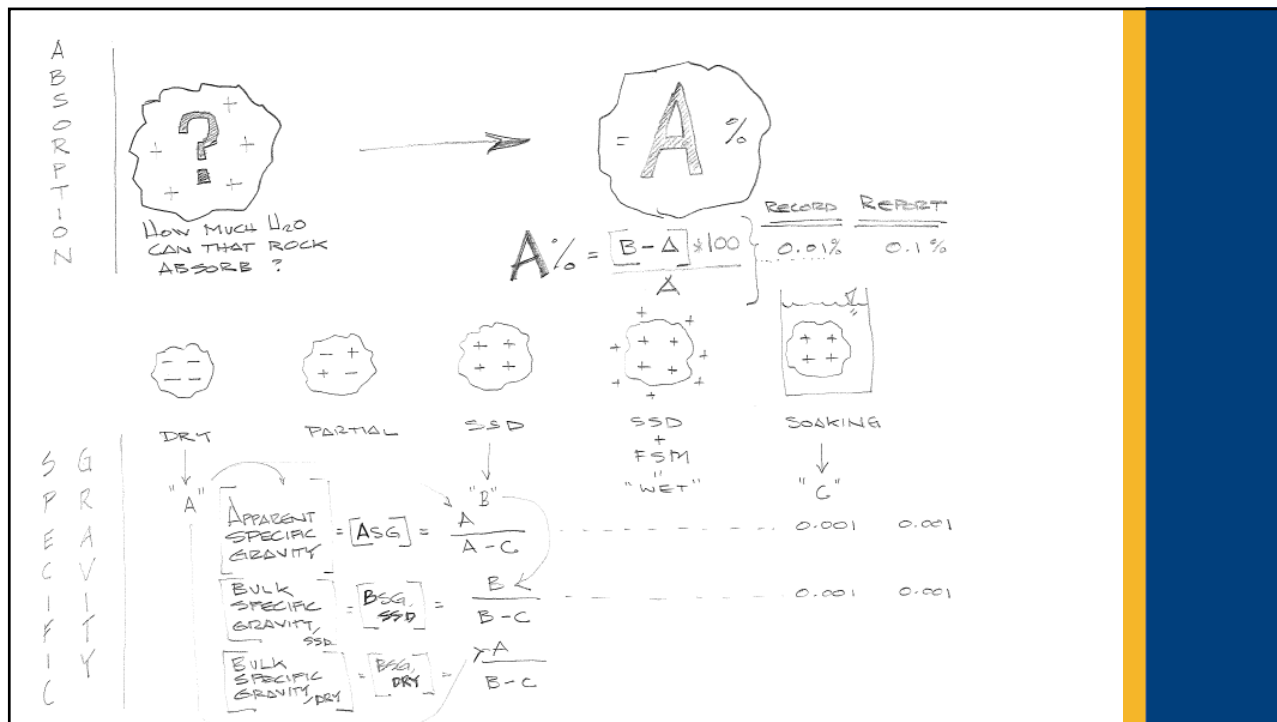 ABSORPTION
?
HOW MUCH H₂O
CAN THAT ROCK
ABSORB ?
= A %
RECORD REPORT
A% = [B-A]*100 / A
0.01% 0.1%
DRY
PARTIAL
SSD
SSD
+
FSM
"
"WET"
SOAKING
SPECIFIC GRAVITY
"A"
"B"
"C"
[APPARENT
SPECIFIC
GRAVITY] = [ASG] = A / A-C 0.001 0.001
[BULK
SPECIFIC
GRAVITY, SSD] = [BSG, SSD] = B / B-C 0.001 0.001
[BULK
SPECIFIC
GRAVITY, DRY] = [BSG, DRY] = A / B-C